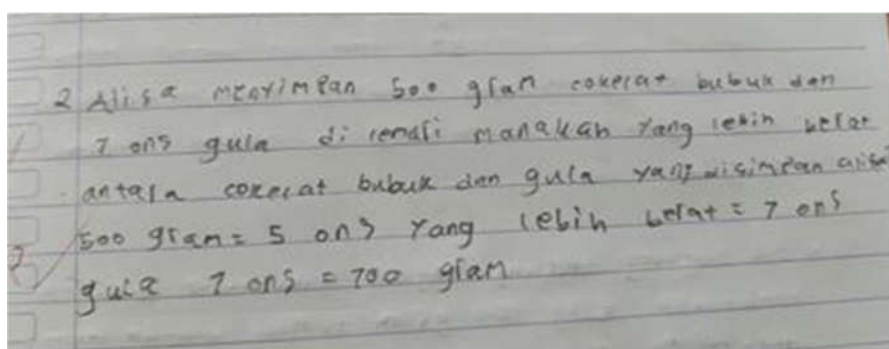 2 Alisa menyimpan 500 gram cokelat bubuk dan
7 ons gula di lemari manakah yang lebih berat
antara cokelat bubuk dan gula yang disimpan alisa
500 gram = 5 ons yang lebih berat = 7 ons
gula 7 ons = 700 gram